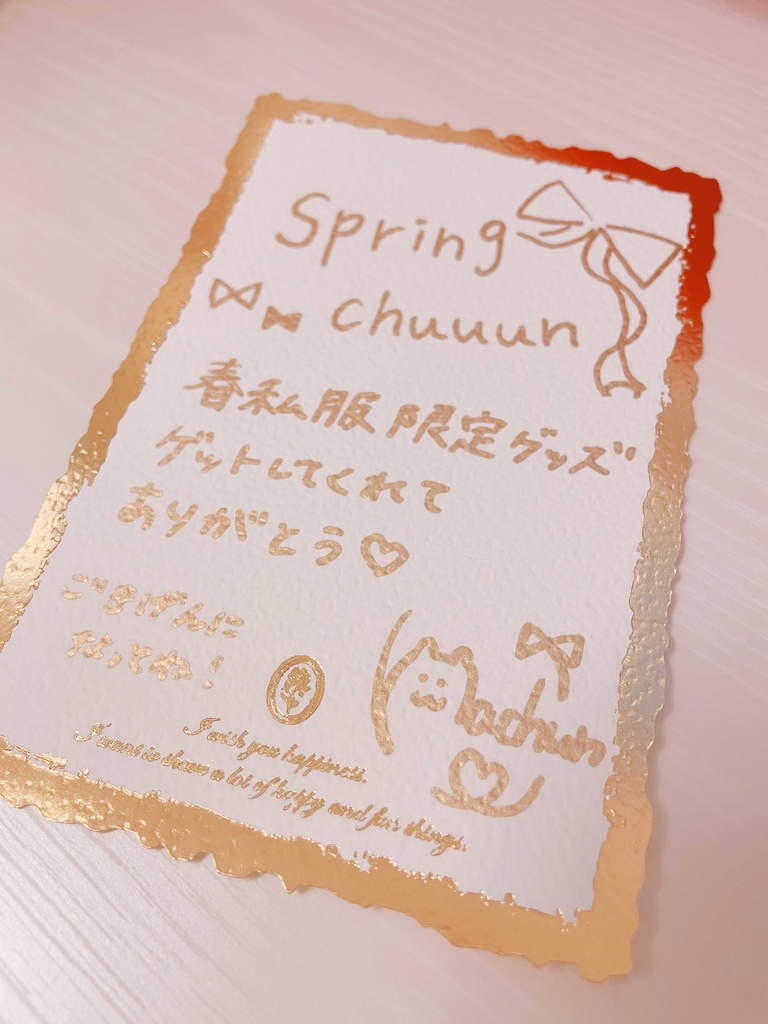 Spring
chuuun
春私服 限定グッズ
ゲットしてくれて
ありがとう♡
ごきげんに
なってね！
Machun
I wish you happiness.
I want to share a lot of happy and fun things.